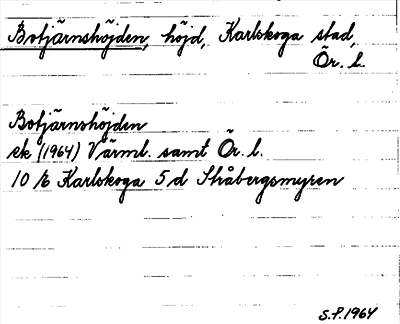 Botjärnshöjden, höjd, Karlskoga stad,
Ör. l.
Botjärnshöjden
ek (1964) Värml. samt Ör. l.
10 E Karlskoga 5 d Stråbergsmyren
S.P. 1964